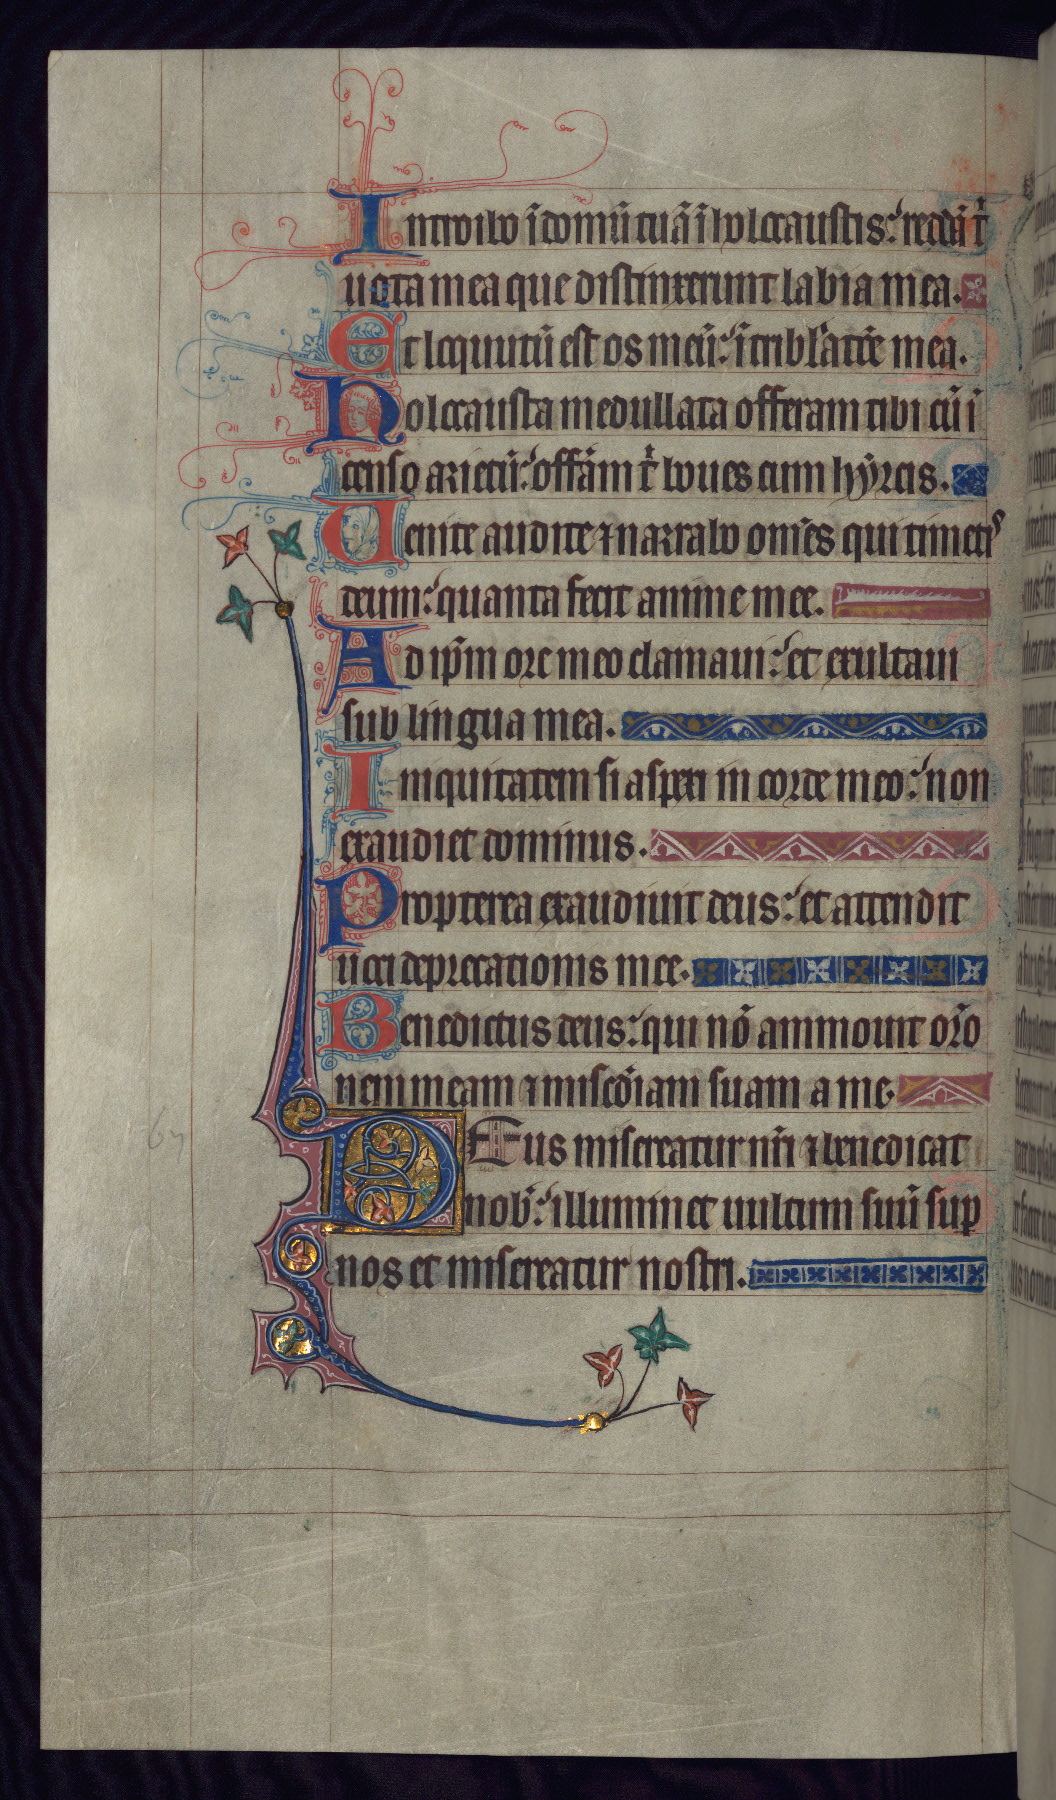 Introibo ĩ domũ tuã ĩ holocaustis: reddã t̉
uota mea que distinxerunt labia mea.
Et locutũ est os meũ: ĩ tribl̉atõe mea.
Holocausta medullata offeram tibi cũ ĩ
censo arietũ: offãm t̉ boues cum hyrcis.
Uenite audite ⁊ narrabo om̃es qui timetis
deum: quanta fecit anime mee.
Ad ip̃m ore meo clamaui: et exultaui
sub lingua mea.
Iniquitatem si aspexi in corde meo: non
exaudiet dominus.
Propterea exaudiuit deus: et attendit
uoci deprecationis mee.
Benedictus deus: qui nõ ammouit or̃o
nem meam ⁊ misc̃diam suam a me.
Deus misereatur nr̃i ⁊ benedicat
nob̉: illuminet uultum suũ sup̱
nos et misereatur nostri.
67